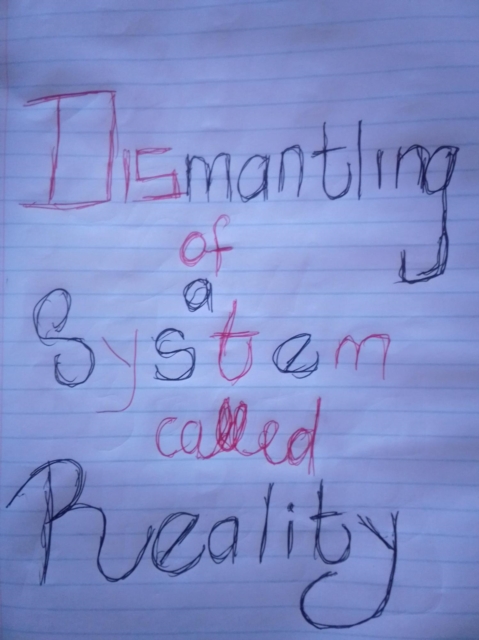 Dismantling
of
a
System
called
Reality